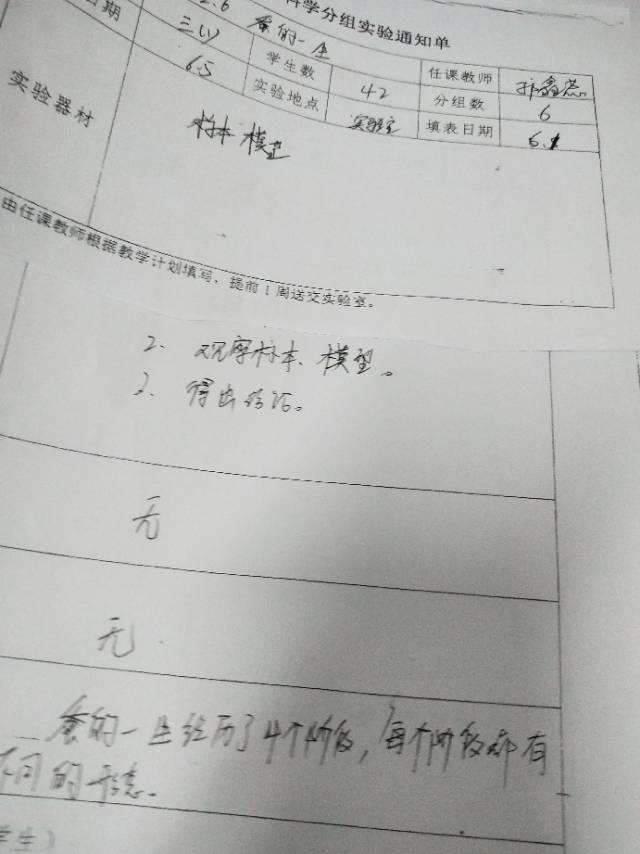 科学分组实验通知单
2.6 蚕的一生
日期 三(1) 学生数 42 任课教师
6.5 实验地点 实验室 分组数 6
填表日期 6.1
实验器材 标本 模型
由任课教师根据教学计划填写，提前1周送交实验室。
2. 观察标本、模型。
3. 得出结论。
无
无.
蚕的一生经历了4个阶段，每个阶段都有
不同的形态。
学生）